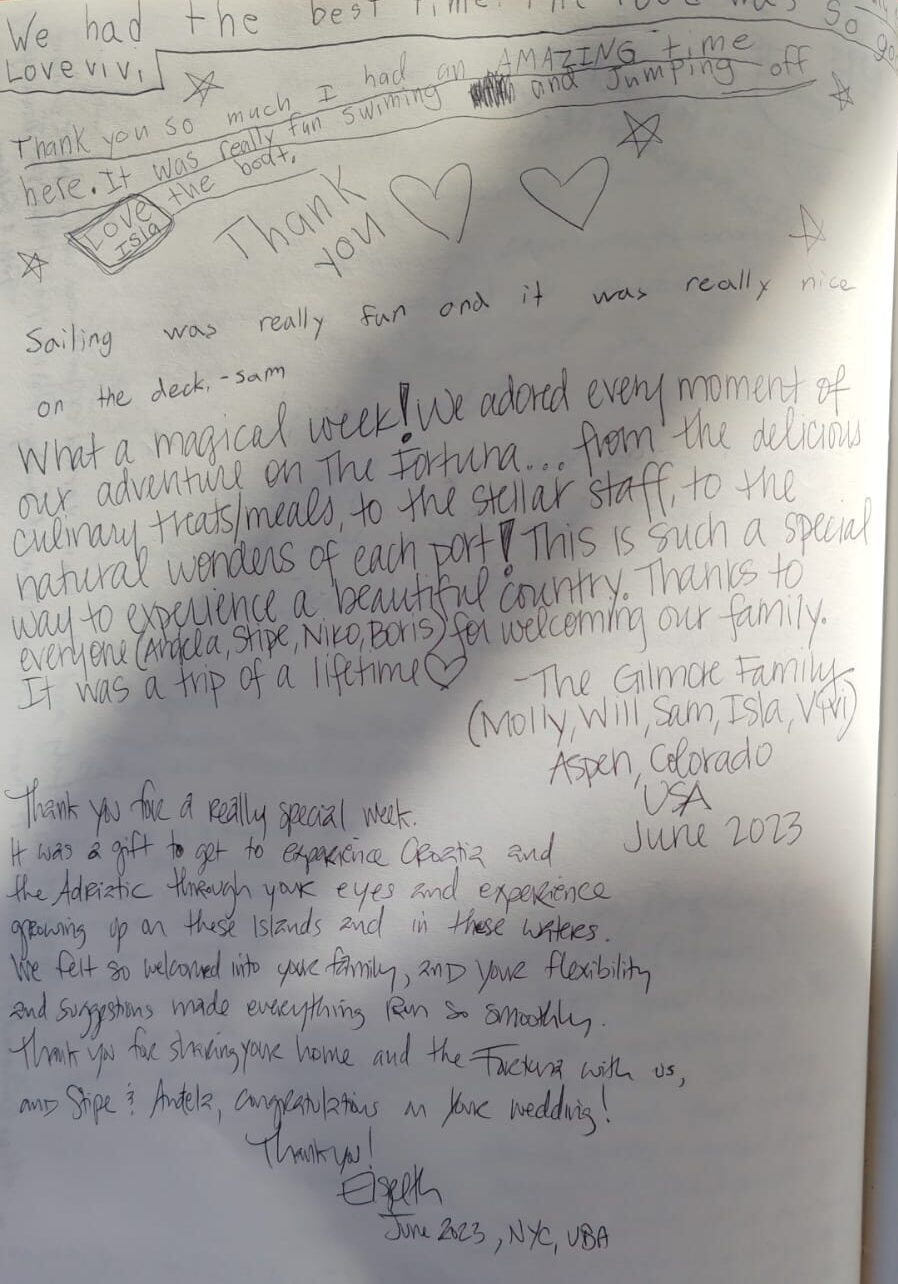 We had the best time. The food was so good
Love vivi
Thank you so much I had an AMAZING time
here. It was really fun swiming and Jumping off
the boat.
Love
Isla
Thank
you
Sailing was really fun and it was really nice
on the deck. -sam
What a magical week! We adored every moment of
our adventure on The Fortuna... from the delicious
culinary treats/meals, to the stellar staff, to the
natural wonders of each port! This is such a special
way to experience a beautiful country. Thanks to
everyone (Andela, Stipe, Niko, Boris) for welcoming our family.
It was a trip of a lifetime♡
-The Gilmore Family
(Molly, Will, Sam, Isla, Vivi)
Aspen, Colorado
USA
June 2023
Thank you for a really special week.
It was a gift to get to experience Croatia and
the Adriatic through your eyes and experience
growing up on these Islands and in these waters.
We felt so welcomed into your family, and your flexibility
and suggestions made everything run so smoothly.
Thank you for sharing your home and the Fortuna with us,
and Stipe & Andela, congratulations on your wedding!
Thank you!
Elspeth
June 2023, NYC, UBA